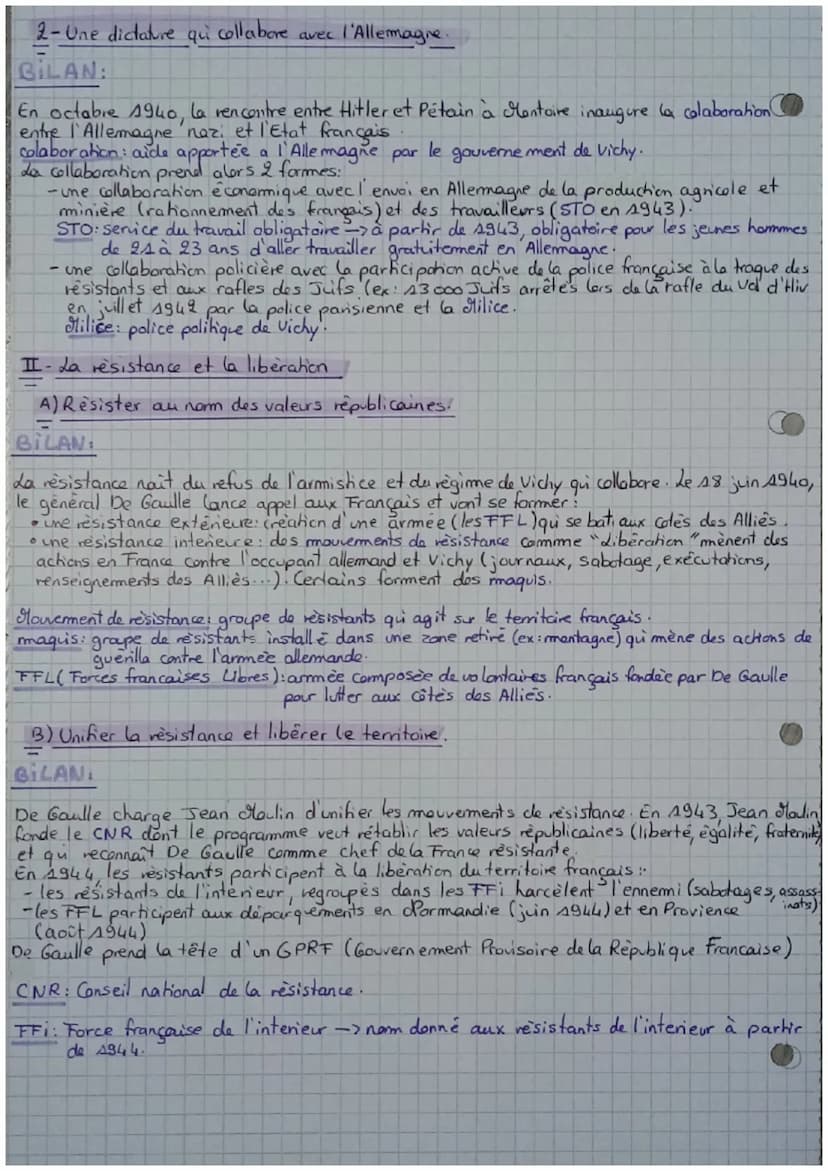 2-Une dictature qui collabore avec l'Allemagne.
BiLAN:
En octobre 1940, la rencontre entre Hitler et Pétain à Montoire inaugure la colaboration
entre l'Allemagne nazi et l'Etat français.
colaboration: aide apportée a l'Allemagne par le gouvernement de Vichy.
La collaboration prend alors 2 formes:
-une collaboration économique avec l'envoi en Allemagne de la production agricole et
minière (rationnement des français) et des travailleurs (STO en 1943).
STO: service du travail obligatoire -> à partir de 1943, obligatoire pour les jeunes hommes
de 21 à 23 ans d'aller travailler gratuitement en Allemagne.
- une collaboration policière avec la participation active de la police française à la traque des
résistants et aux rafles des Juifs (ex: 13 000 Juifs arrêtés lors de la rafle du Vel d'Hiv
en juillet 1942 par la police parisienne et la Milice.
Milice: police politique de Vichy.
II- La résistance et la libération
A) Résister au nom des valeurs républicaines.
BiLAN:
La résistance nait du refus de l'armistice et du régime de Vichy qui collabore. Le 18 juin 1940,
le général De Gaulle lance appel aux Français et vont se former:
• une résistance extérieure: création d'une armée (les FFL) qui se bat aux cotés des Alliés.
• une résistance interieure: des mouvements de résistance comme "Libération" mènent des
actions en France contre l'occupant allemand et Vichy (journaux, sabotage, exécutations,
renseignements des Alliés...). Certains forment des maquis.
Mouvement de résistance: groupe de résistants qui agit sur le territoire français.
maquis: groupe de résistants installé dans une zone retiré (ex: montagne) qui mène des actions de
guérilla contre l'armée allemande.
FFL (Forces francaises Libres): armée composée de volontaires français fondée par De Gaulle
pour lutter aux côtés des Alliés.
B) Unifier la résistance et libérer le territoire.
BiLAN:
De Gaulle charge Jean Moulin d'unifier les mouvements de résistance. En 1943, Jean Moulin
fonde le CNR dont le programme veut rétablir les valeurs républicaines (liberté, égalité, fraternité)
et qui reconnaît De Gaulle comme chef de la France résistante.
En 1944, les résistants participent à la libération du territoire français:
- les résistants de l'interieur, regroupés dans les FFi harcèlent l'ennemi (sabotages, assass-
inats)
-les FFL participent aux déparquements en Normandie (juin 1944) et en Provience
(août 1944)
De Gaulle prend la tête d'un GPRF (Gouvernement Provisoire de la République Francaise)
CNR: Conseil national de la résistance.
FFi: Force française de l'interieur -> nom donné aux résistants de l'interieur à partir
de 1944.